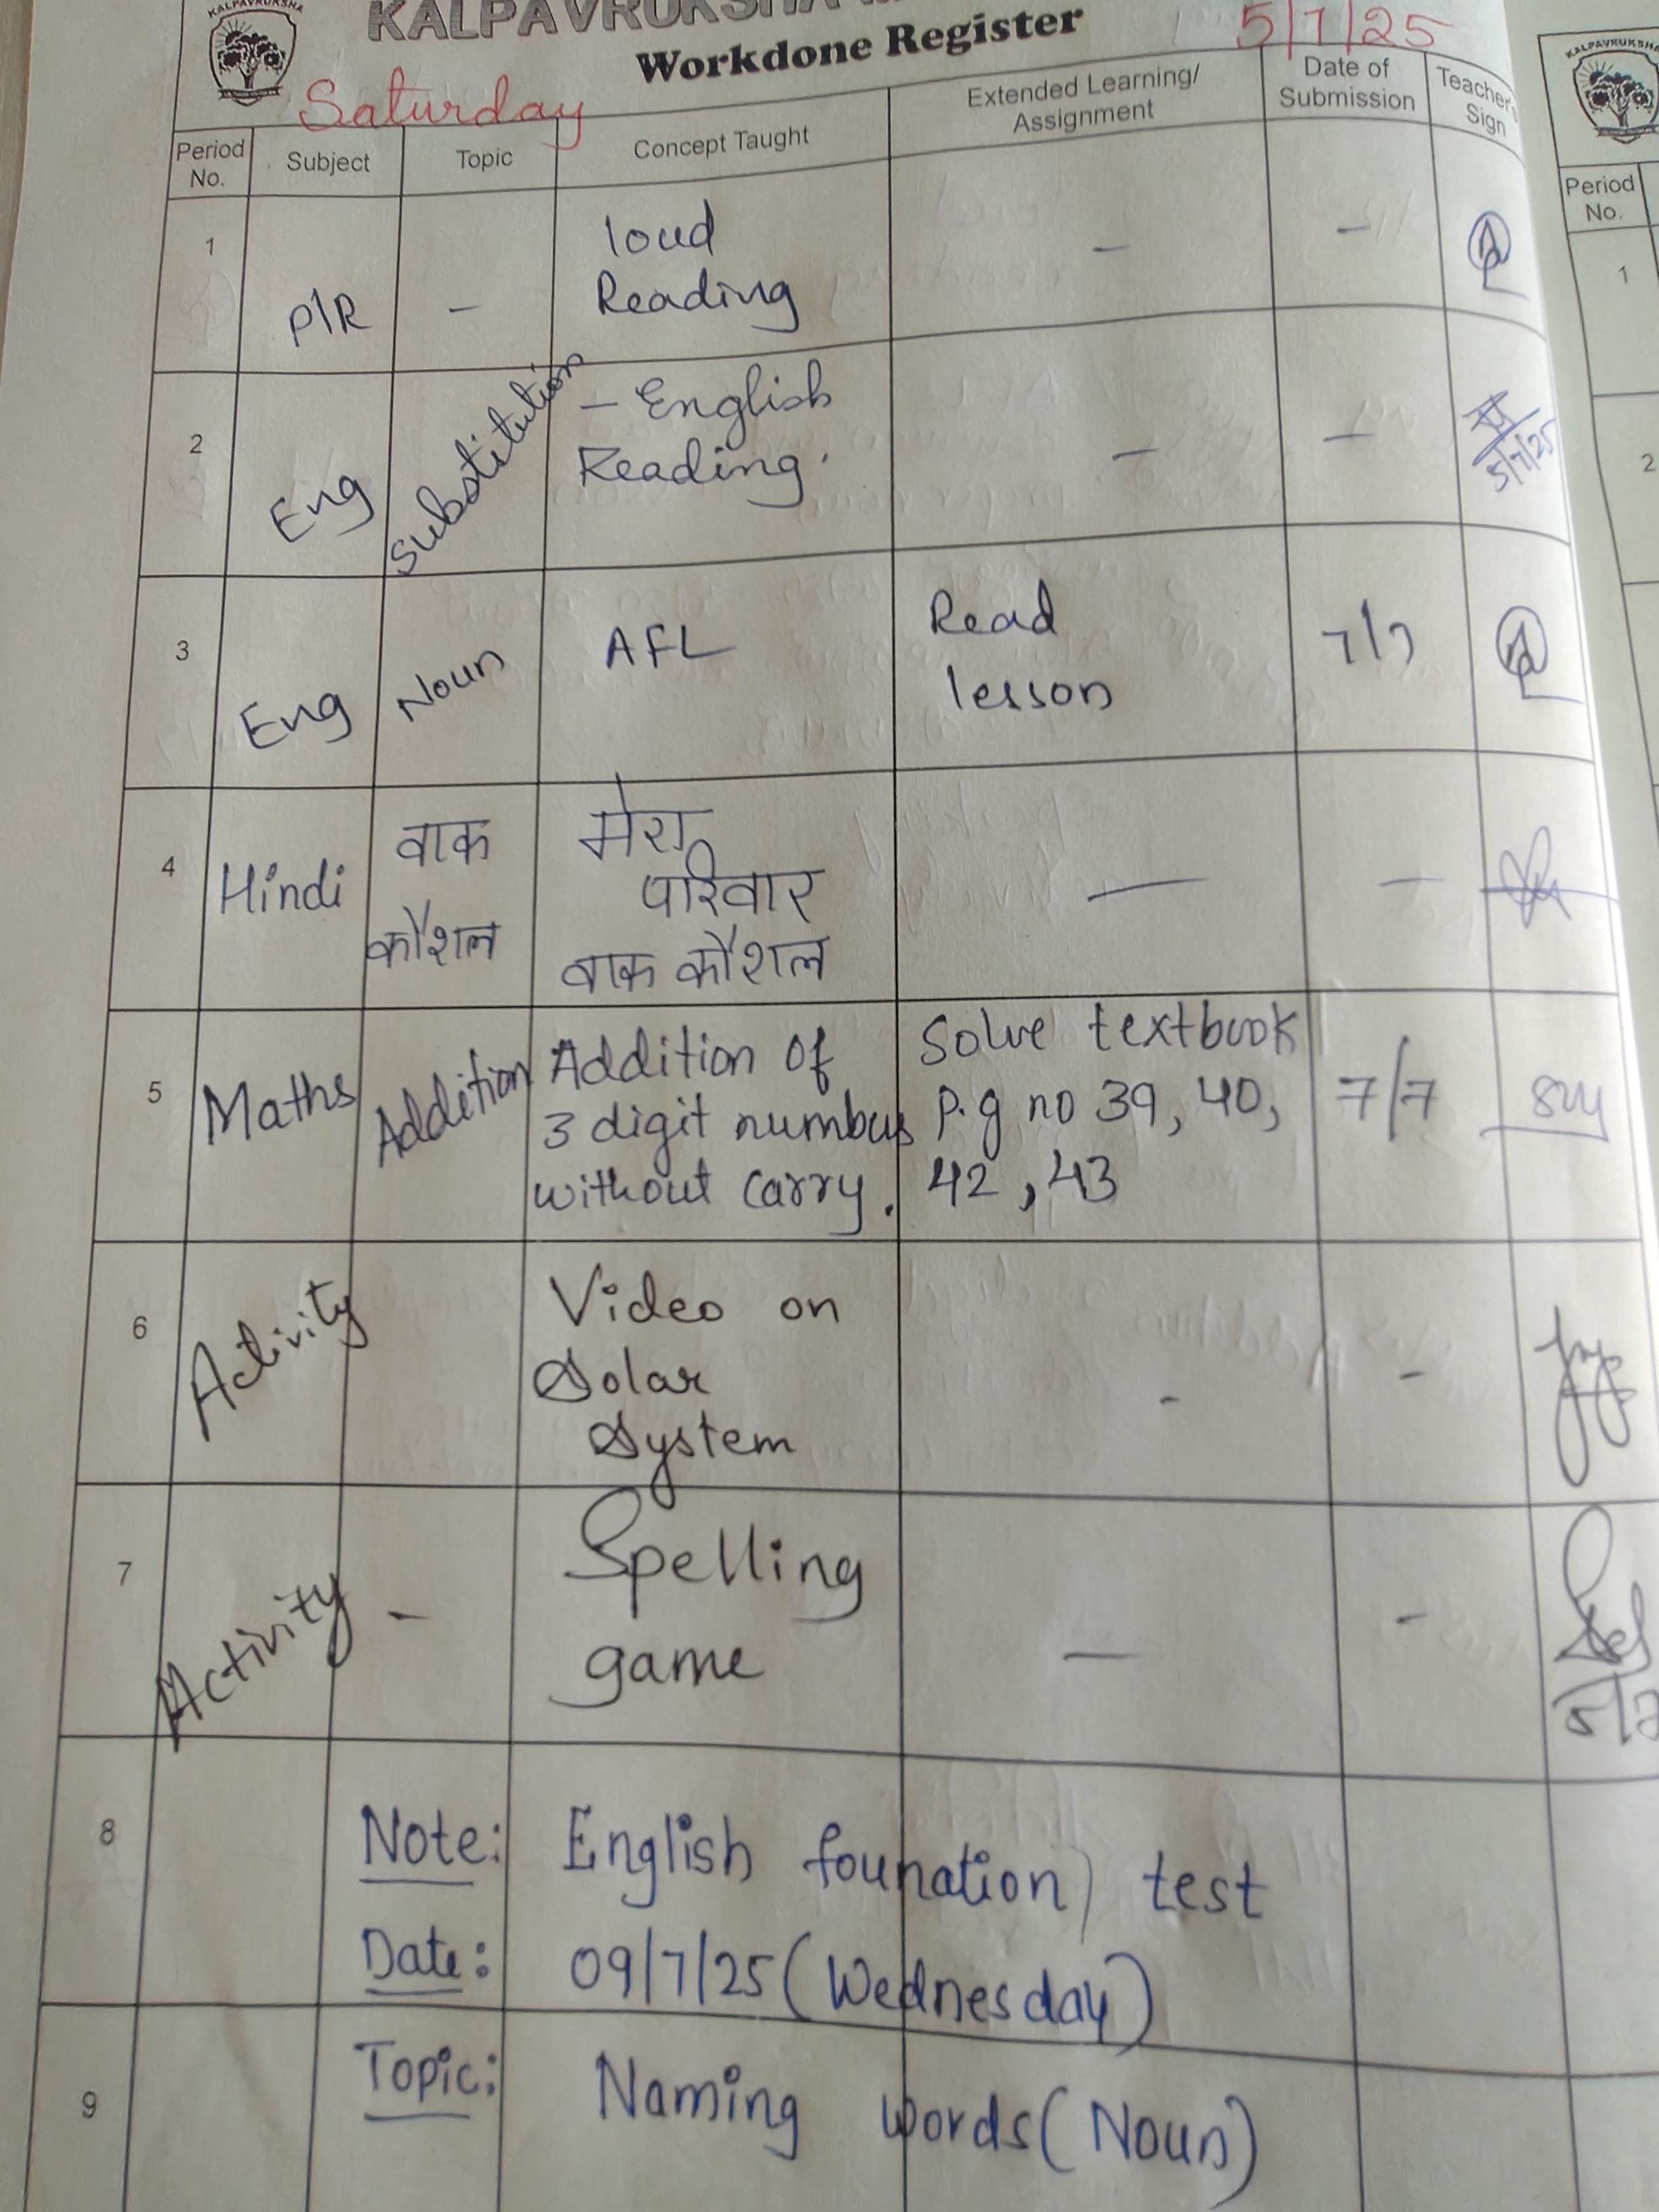 KALPAVRUKSHA
KALPAVRUKSHA
Workdone Register
5/7/25
Saturday
Period No. Subject Topic Concept Taught Extended Learning/ Assignment Date of Submission Teacher's Sign
1 P/R - loud
Reading - -
2 Eng Substitution - English
Reading. - - 5/7/25
3 Eng Noun AFL Read
lesson 7/7
4 Hindi वाक
कौशल मेरा
परिवार
वाक कौशल - -
5 Maths Addition Addition of
3 digit numbers
without carry. Solve textbook
P.g no 39, 40,
42, 43 7/7
6 Activity Video on
Solar
System - -
7 Activity - Spelling
game - -
8 Note: English founation test
Date: 09/7/25 (Wednesday)
9 Topic: Naming words (Noun)
KALPAVRUKSHA
Period
No.
1
2